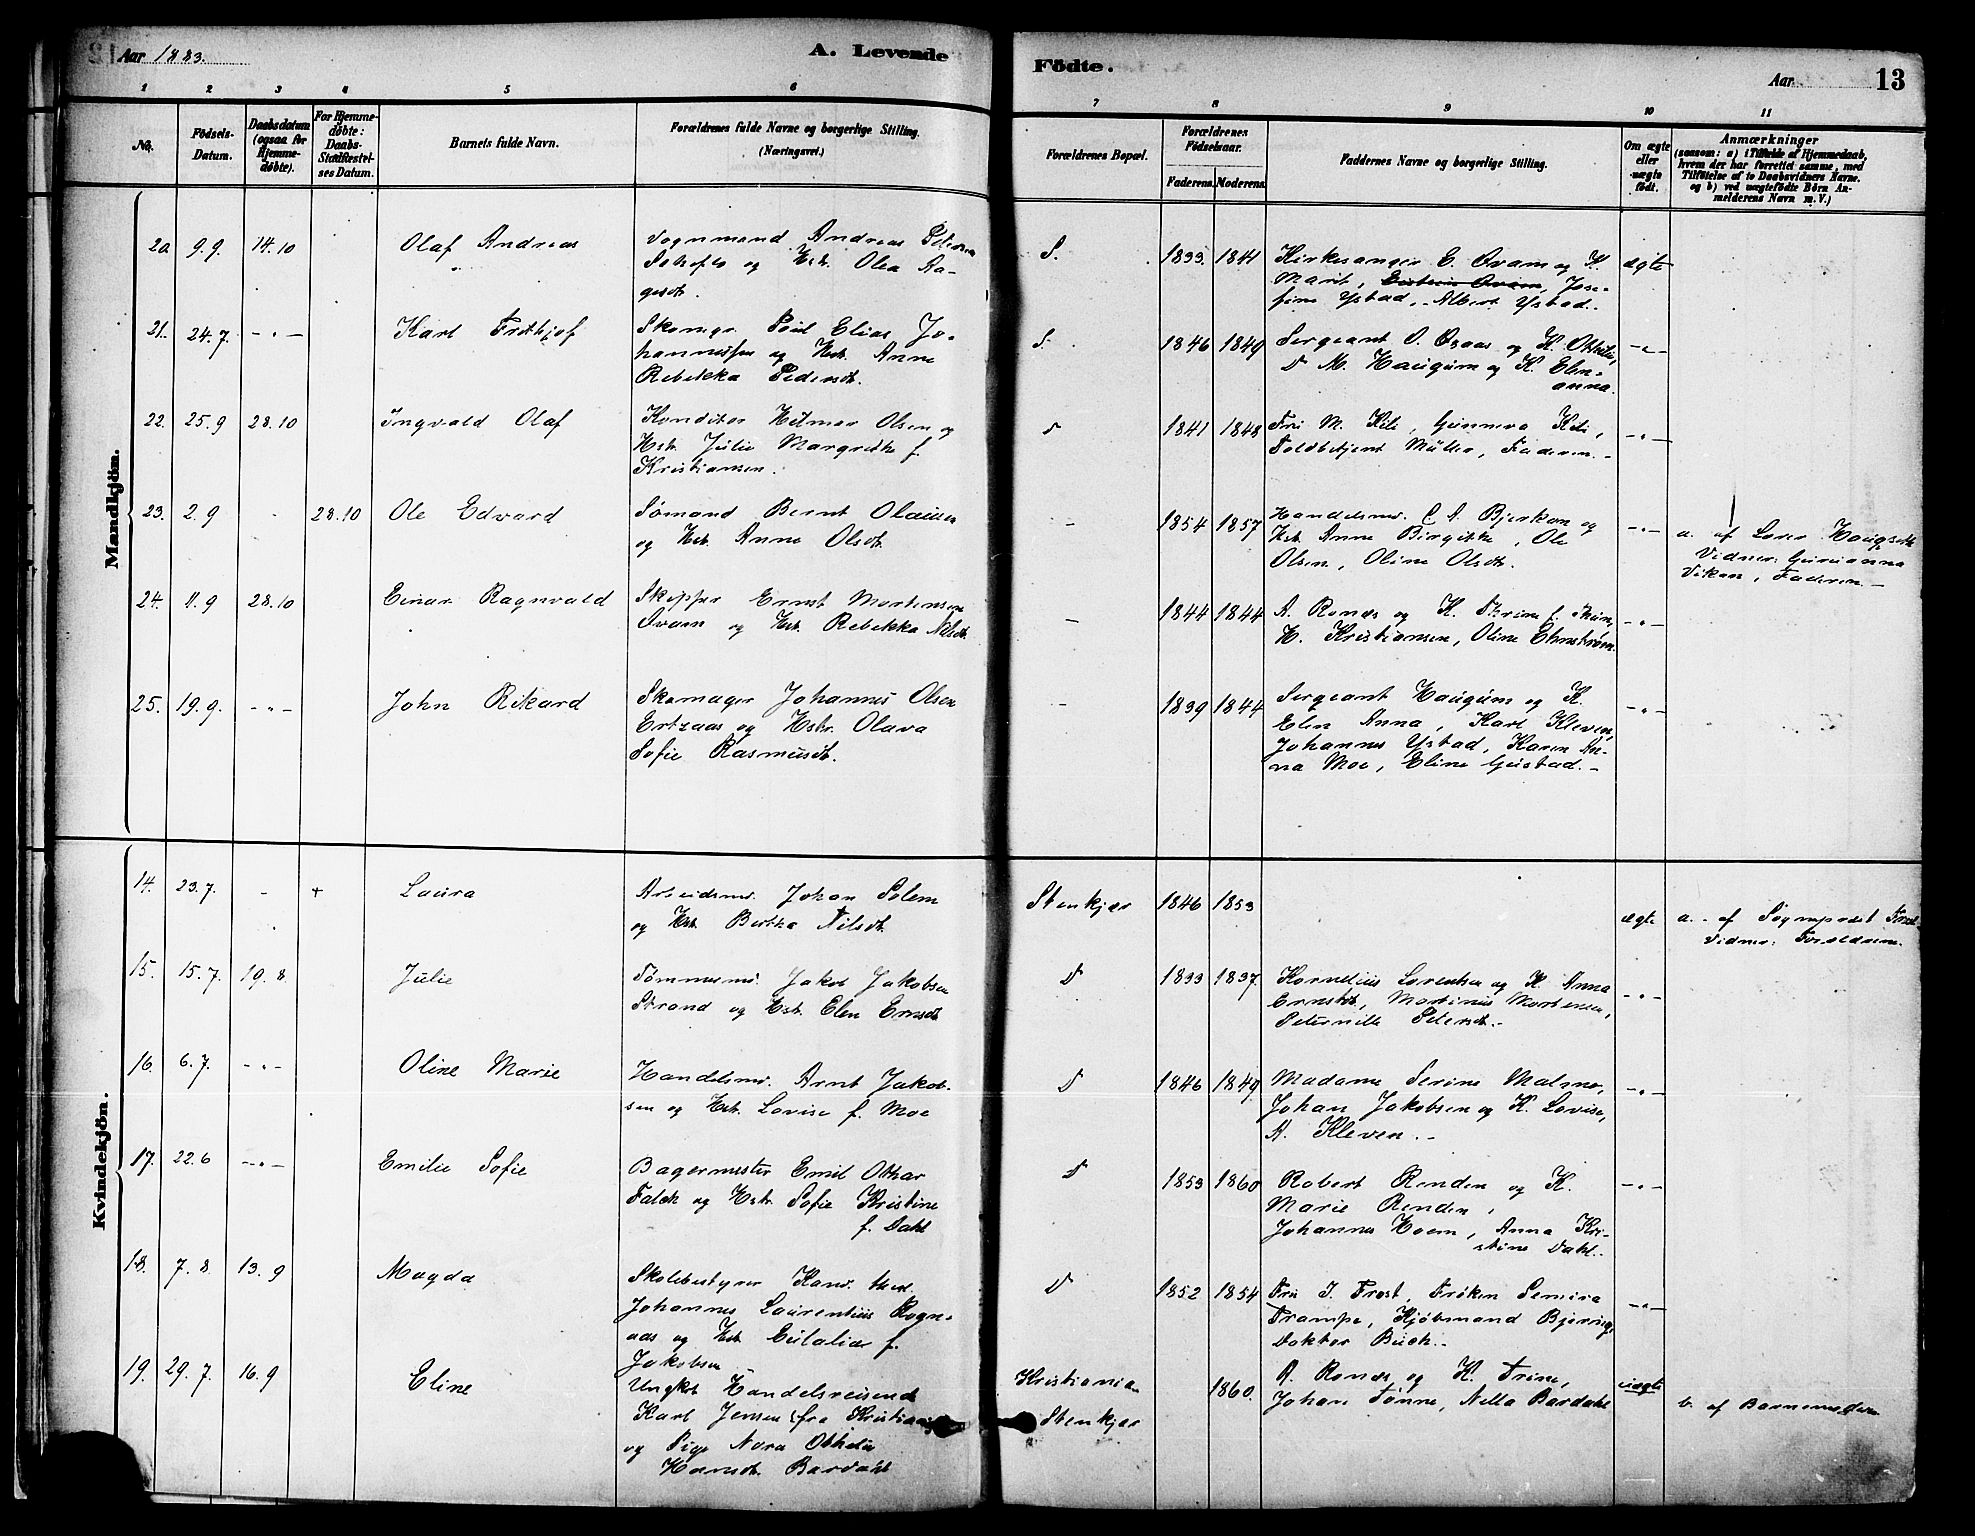 Aar 1883.
A. Levende
Födte.
Aar
13
1 2 3 4 5 6
7 8 9 10 11
No. Födsels-Datum. Daabsdatum (ogsaa for Hjemme-döbte). For Hjemme-döbte: Daabs-Stadfæstel-ses Datum. Barnets fulde Navn. Forældrenes fulde Navne og borgerlige Stilling. (Næringsvei.)
Forældrenes Bopæl. Forældrenes Födselsaar. Faderens. Moderens. Faddernes Navne og borgerlige Stilling. Om ægte eller uægte födt. Anmærkninger
(saasom: a) i Tilfælde af Hjemmedaab,
hvem der har forrettet samme, med
Tilföielse af to Daabsvidners Navne.
og b) ved uægtefödte Börn An-
melderens Navn m. V.)
Mandkjön.
20 9.9. 14.10 Olaf Andreas Vognmand Andreas Petersen
og Hst. Olea Aa-
gesdt.
S. 1833. 1841 Kirkesanger E. Qvam og K. ægte
Marit, Jose-
fine Ystad, Albert Ystad.
21. 24.7. -"- Karl Frithjof Skomgr. Paul Elias Jo-
hannessen og Hst. Anne
Rebekka Pedersdt.
S. 1846 1849 Sergeant O. Aaas og K. -"-
M. Haugum og K. Elen-
anna.
22. 25.9 28.10 Ingvald Olaf Konditor Hilmar Olsen og
Hst. Julie Margrethe f.
Kristiansen.
1841 1848 Fru M. Kili, Gunneva Kili, -"-
Toldbetjent Müller, Faderen.-
23. 2.9 28.10 Ole Edvard Sømand Bernt Olausen
og Hst. Anne Olsdt.
- 1854 1857 Handelsmd. C A. Bjerkan og -"-
Hst. Anne Birgitte, Ole
Olsen, Oline Olsdt.
a. af Lærer Haugseth
Vidner: Gurianna
Vikan, Faderen.-
24. 11.9 28.10 Einar Ragnvald Skipper Ernst Mortensen
Svarn og Hst. Rebekka Nilsdt.
- 1844 1844 A. Ronæs og K. Thrine f. -"-
H. Kristiansen, Oline Ehnstrøm.
25. 19.9. -"- John Rikard Skomager Johannes Olsen
Ertsaas og Hstr. Olava
Sofie Rasmusdt.
- 1839 1844 Sergeant Haugum og K. -"-
Elen Anna, Karl Kleven,
Johannes Ystad, Karen An-
na Moe, Eline Gustad.-
Kvindekjön.
14. 23.7. - + Laura Arbeidsmd. Johan Solem
og Hst. Beritha Nilsdt.
Stenkjær 1846 1853 ægte a. - af Sogneprest
Vidner: Forældrene.
15. 15.7. 19.8 Julie Tømmermd. Jakob Jakobsen
Strand og Hst. Elen Ernsdt.
D 1833 1837. Kornelius Lorentsen og K. Anna -"-
Ernstdt., Martinus Mortensen,
Peternille Petersdt.-
16. 6.7. -"- Oline Marie Handelsmd. Arnt Jakob-
sen og Hst. Lovise f. Moe
D 1846 1849 Madame Serine Malmo, -"-
Johan Jakobsen og K. Lovise,
A. Kleven.-
17. 22.6 -"- Emilie Sofie Bagermester Emil Othar
Falch og Hst. Sofie Kristine
f. Dahl
D 1853 1860 Robert Renden og K. -"-
Marie Renden,
Johannes Hoem, Anna Kri-
stine Dahl.
18. 7.8. 13.9 Magda Skolebestyrer Kand. theol.
Johannes Laurentius Rogn-
aas og Hst. Eulalia f.
Jakobsen
D 1852 1854 Fru J. Frost, Frøken Semira -"-
Trampe, Kjøbmand Bjerring,
Doktor Buch.-
19. 29.7. 16.9 Eline Ungkt. Handelsreisende
Karl Jensen (fra Kristiania)
og Pige Nora Othelie
Hansdt. Bardahl
Kristiania
Stenkjær
1860. A. Ronæs og K. Trine, uægte
Johan Tønne, Nella Bardahl
b. af Barnemoderen